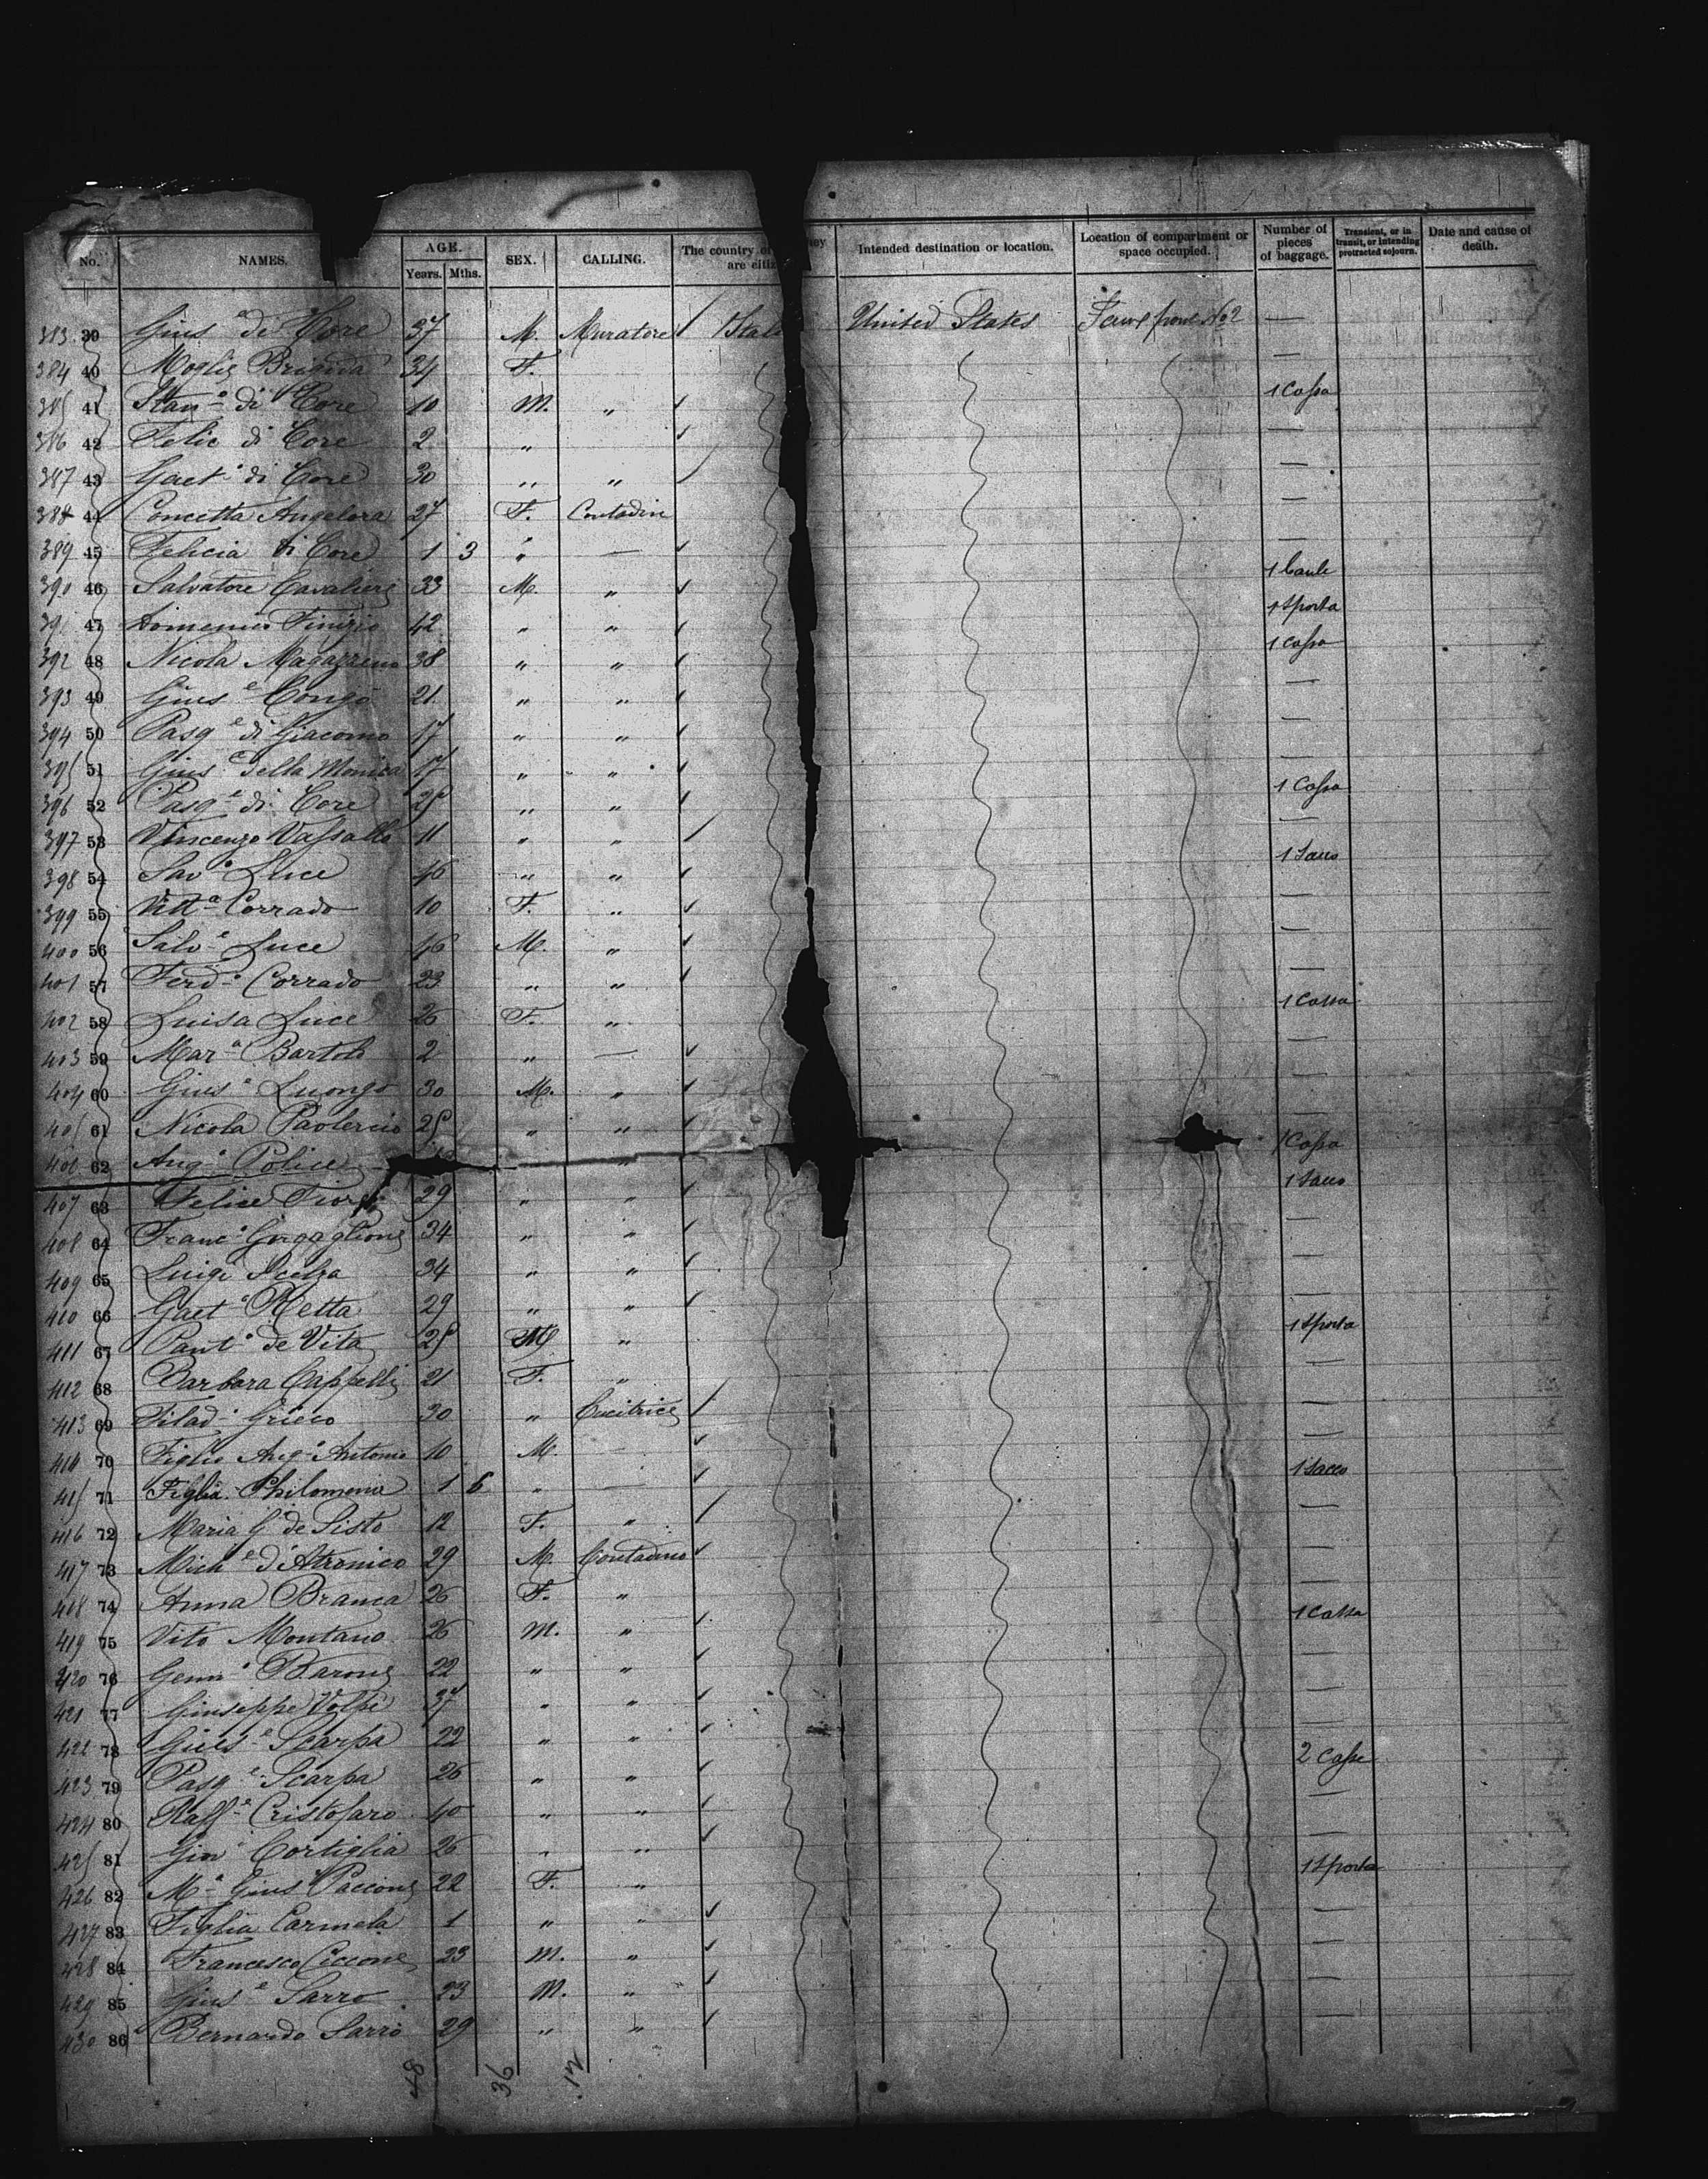 No. NAMES. AGE. Years. Mths. SEX. CALLING. The country of are citiz Intended destination or location. Location of compartment or space occupied. Number of pieces of baggage. Transient, or in transit, or intending protracted sojourn. Date and cause of death.
383 39 Gius.e di Core 37 M. Muratore Ital United States No 2 —
384 40 Moglie Brigida 34 F. —
385 41 di Core 10 M. " 1 Cassa
386 42 Felic di Core 2 " —
387 43 Gaet.o di Core 30 " " —
388 44 Concetta Angelora 27 F. Contadin —
389 45 Felicia di Core 1 3 " — —
390 46 Salvatore Cavaliere 33 M. " 1 Baule
39 47 Domenico Finizio 42 " " 1 Sporta
392 48 Nicola Magazzeno 38 " " 1 Cassa
393 49 Gius.e Congo 21 " " —
394 50 Pasq.e di Giacomo 17 " " —
395 51 Gius.e Della Monica 17 " " —
396 52 Pasq.e di Core 25 " " 1 Cassa
397 53 Vincenzo Vassallo 11 " " —
398 54 Sav.o Luce 46 " " 1 Sacco
399 55 Corrado 10 F. " —
400 56 Salv.e Luce 46 M. " —
401 57 Ferd.o Corrado 23 " " —
402 58 Luisa Luce 26 F. " 1 Cassa
403 59 Mar.a Bartolo 2 " — —
404 60 Gius.e Luongo 30 M. " —
405 61 Nicola Paolercio 25 " " —
406 62 Ang.o Police " 1 Cassa
407 63 Felice Fiore 29 " " 1 Sacco
408 64 Franc.o Gargaglione 34 " " —
409 65 Luigi Scelza 34 " " —
410 66 Gaet.o Retta 29 " " —
411 67 Pant.o de Vita 25 M " 1 Sporta
412 68 Barbara Cappelli 21 F. " —
413 69 Filad.a Grieco 30 " Cucitrice —
414 70 Figlio Ang.o Antonio 10 M. — —
415 71 Figlia Philomena 1 6 " — 1 Sacco
416 72 Maria G. de Sisto 12 F. " —
417 73 Mich.e d'Atronico 29 M. Contadino —
418 74 Anna Branca 26 F. " —
419 75 Vito Montano 26 M. " 1 Cassa
420 76 Genn.o Barone 22 " " —
421 77 Giuseppe Volpe 37 " " —
422 78 Gius.e Scarpa 22 " " —
423 79 Pasq.e Scarpa 26 " " 2 Casse
424 80 Raff.e Cristofaro 40 " " —
425 81 Giov Cortiglia 26 " " —
426 82 M.a Gius Paccione 22 F. " 1 Sporta
427 83 Figlia Carmela 1 " " —
428 84 Francesco Ciccone 23 M. " —
429 85 Gius.e Sarro 23 M. " —
430 86 Bernardo Sarro 29 " " —
48 36 12